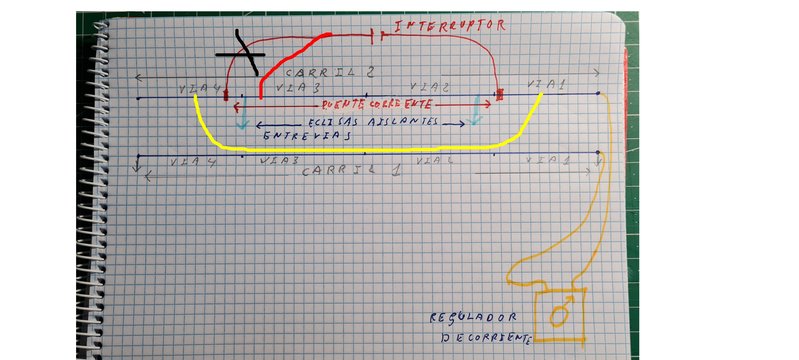 INTERRUPTOR
CARRIL 2
VIA4 VIA3 VIA2 VIA1
PUENTE CORRIENTE
ECLISAS AISLANTES
ENTRE VIAS
VIA4 VIA3 VIA2 VIA1
CARRIL 1
REGULADOR
DE CORRIENTE